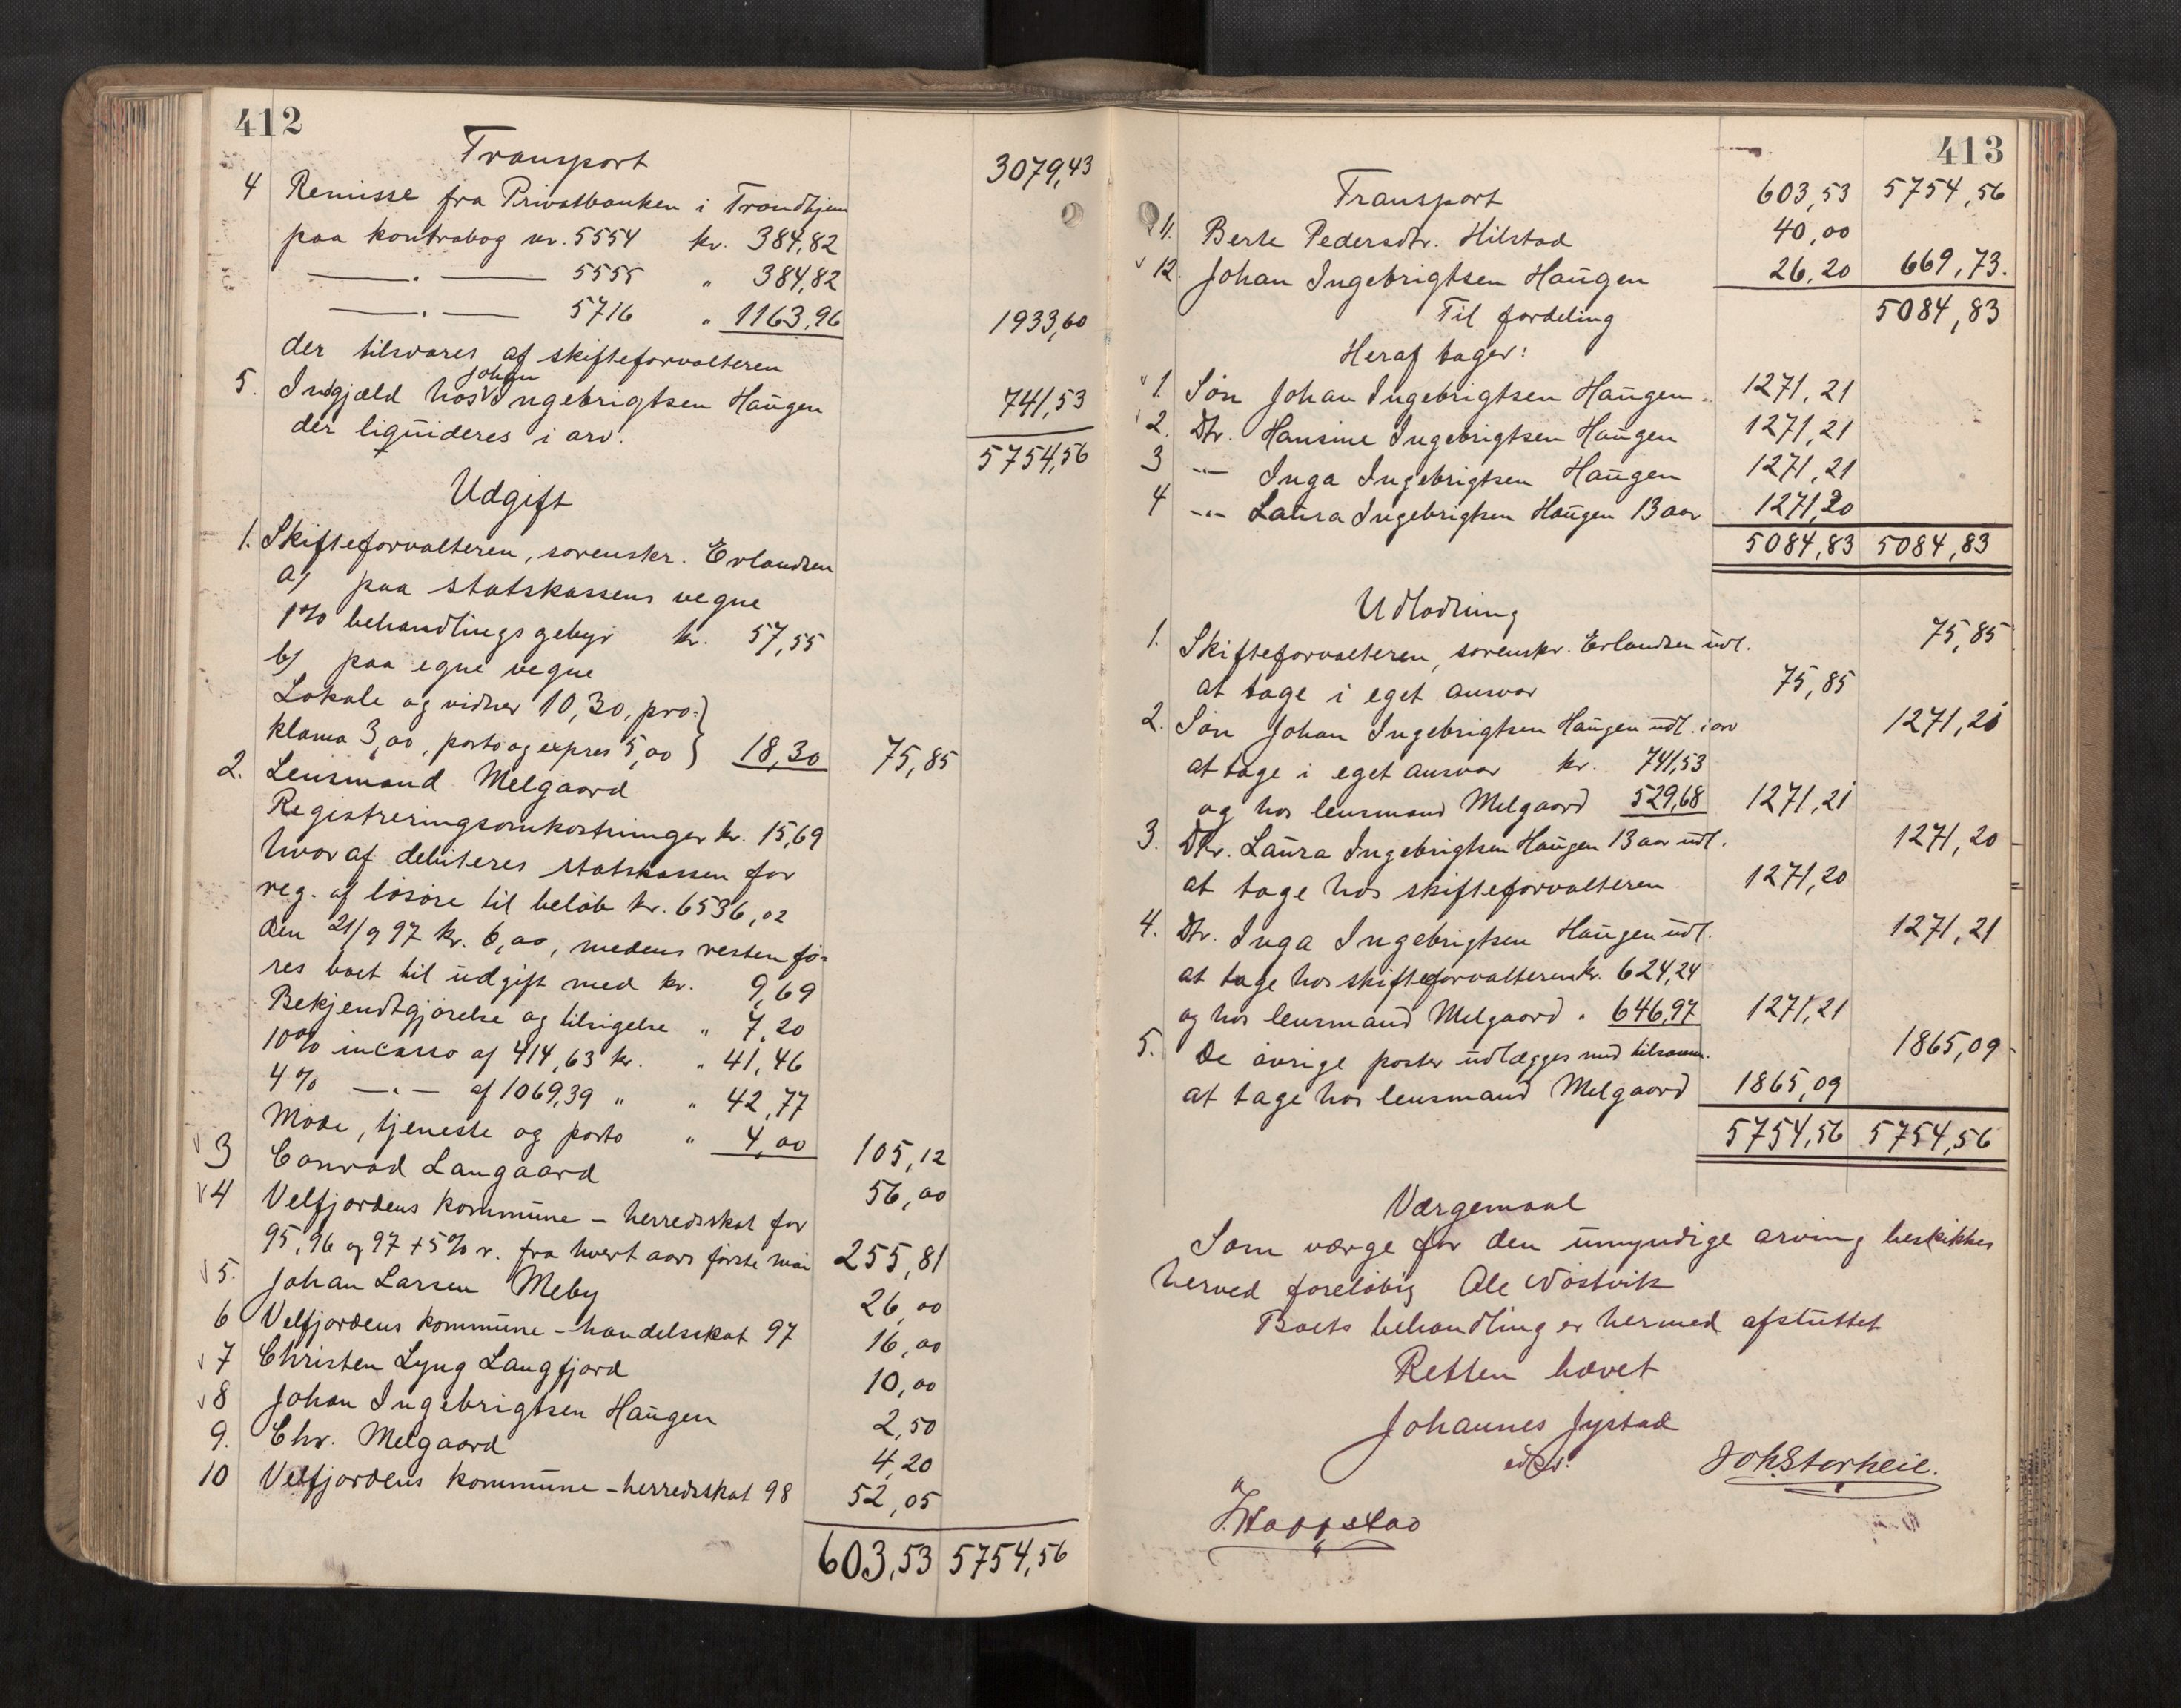 412
Transport 3079,43
4 Remisse fra Privatbanken i Trondhjem
paa kontrabog nr. 5554 kr. 384,82
—„— 5555 „ 384,82
—„— 5716 „ 1163,96 1933,60
der tilsvares af skifteforvalteren
5. Indgjæld hos Johan Ingebrigtsen Haugen 741,53
der liquideres i arv.
5754,56
Udgift
1. Skifteforvalteren, sorenskr. Erlandsen
a) paa statskassens vegne
1% behandlingsgebyr kr. 57,55
b) paa egne vegne
Lokale og vidner 10,30, pro=
klama 3,00, porto og expres 5,00 } 18,30 75,85
2. Lensmand Melgaard
Registreringsomkostninger kr. 15,69
hvoraf debiteres statskassen for
reg. af løsøre til beløb kr. 6536,02
den 21/9 97 kr. 6,00, medens resten fø=
res boet til udgift med kr. 9,69
Bekjendtgjørelse og tilsigelse „ 7,20
10% incasso af 414,63 kr. „ 41,46
4% —„— af 1069,39 „ „ 42,77
Møde, tjeneste og porto „ 4,00 105,12
3 Conrad Langaard 56,00
4 Velfjordens kommune – herredsskat for
95, 96 og 97 + 5% r. fra hvert aars første mai 255,81
5. Johan Larsen Meby 26,00
6 Velfjordens kommune – handelsskat 97 16,00
7 Christen Lyng Langfjord 10,00
8 Johan Ingebrigtsen Haugen 2,50
9. Chr. Melgaard 4,20
10 Velfjordens kommune – herredsskat 98 52,05
603,53 5754,56
413
Transport 603,53 5754,56
11. Berte Pedersdtr. Hilstad 40,00
12. Johan Ingebrigtsen Haugen 26,20 669,73.
Til fordeling 5084,83
Heraf tager:
1. Søn Johan Ingebrigtsen Haugen 1271,21
2. Dtr. Hansine Ingebrigtsen Haugen 1271,21
3 –„– Inga Ingebrigtsen Haugen 1271,21
4 –„– Laura Ingebrigtsen Haugen 13 aar 1271,20
5084,83 5084,83
Udlodning
1. Skifteforvalteren, sorenskr. Erlandsen udl. 75,85
at tage i eget ansvar 75,85
2. Søn Johan Ingebrigtsen Haugen udl. i arv 1271,21
at tage i eget ansvar kr. 741,53
og hos lensmand Melgaard 529,68 1271,21
3. Dtr. Laura Ingebrigtsen Haugen 13 aar udl. 1271,20
at tage hos skifteforvalteren 1271,20
4. Dtr. Inga Ingebrigtsen Haugen udl. 1271,21
at tage hos skifteforvalteren kr. 624,24
og hos lensmand Melgaard „ 646,97 1271,21
5. De øvrige poster udlægges med tilsamm. 1865,09
at tage hos lensmand Melgaard 1865,09
5754,56 5754,56
Værgemaal
Som værge for den umyndige arving beskikkes
herved foreløbig Ole Nøstvik
Boets behandling er hermed afsluttet
Retten hævet
Johannes Jystad
Joh Storheil.